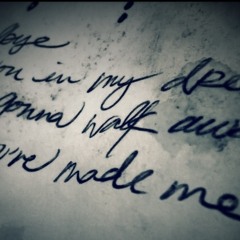 bye
ou in my dre
gonna walk awa
u're made me